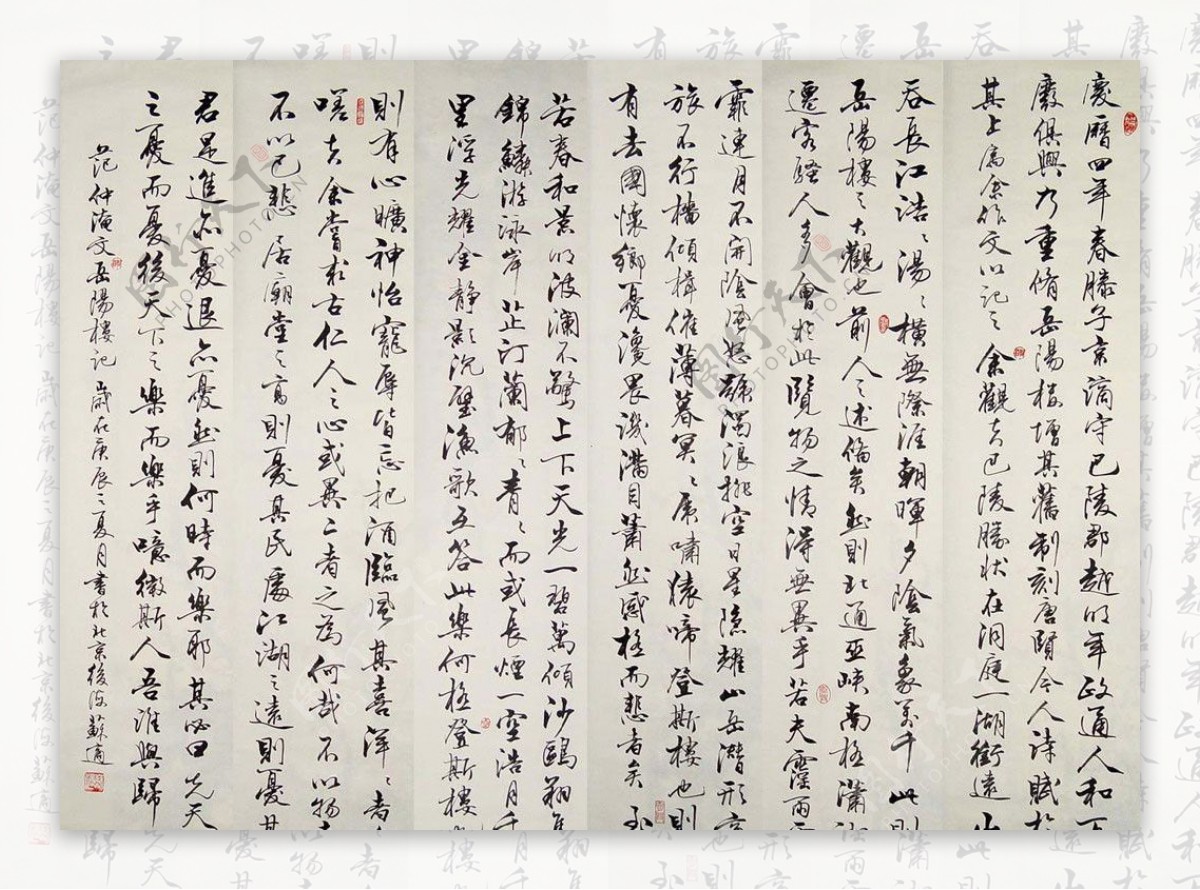 慶曆四年春滕子京謫守巴陵郡越明年政通人和百
廢俱興乃重脩岳陽樓增其舊制刻唐賢今人詩賦於
其上屬余作文以記之余觀夫巴陵勝狀在洞庭一湖銜遠山
吞長江浩〻湯〻橫無際涯朝暉夕陰氣象萬千此則
岳陽樓之大觀也前人之述備矣然則北通巫峽南極瀟湘
遷客騷人多會於此覽物之情得無異乎若夫霪雨霏
霏連月不開陰風怒號濁浪排空日星隱耀山岳潛形商
旅不行檣傾楫摧薄暮冥〻虎嘯猿啼登斯樓也則
有去國懷鄉憂讒畏譏滿目蕭然感極而悲者矣至
若春和景明波瀾不驚上下天光一碧萬傾沙鷗翔集
錦鱗游泳岸芷汀蘭郁〻青〻而或長煙一空浩月千
里浮光耀金靜影沉璧漁歌互答此樂何極登斯樓也
則有心曠神怡寵辱皆忘把酒臨風其喜洋〻者矣
嗟夫余嘗求古仁人之心或異二者之為何哉不以物喜
不以己悲居廟堂之高則憂其民處江湖之遠則憂其
君是進亦憂退亦憂然則何時而樂耶其必曰先天下
之憂而憂後天下之樂而樂乎噫微斯人吾誰與歸
范仲淹文岳陽樓記歲在庚辰之夏月書於北京後海蘇適